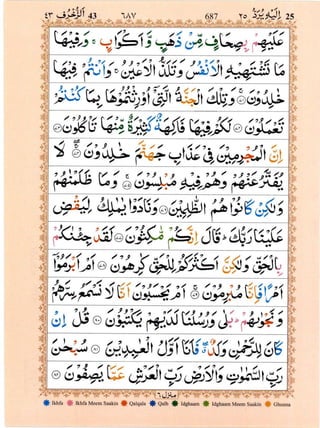 ٤٣ اَلزُّخْرُف 43 ٦٨٧ 687 ٢٥ اِلَيْهِ يُرَدُّ 25
عَلَيْهِمْ بِصِحَافٍ مِّنْ ذَهَبٍ وَّاَكْوَابٍ ۚ وَفِيْهَا
مَا تَشْتَهِيْهِ الْاَنْفُسُ وَتَلَذُّ الْاَعْيُنُ ۚ وَاَنْتُمْ فِيْهَا
خٰلِدُوْنَ ۚ‏﴿۷۱﴾ وَتِلْكَ الْجَنَّةُ الَّتِيْۤ اُوْرِثْتُمُوْهَا بِمَا كُنْتُمْ
تَعْمَلُوْنَ ﴿۷۲﴾ لَكُمْ فِيْهَا فَاكِهَةٌ كَثِيْرَةٌ مِّنْهَا تَاْكُلُوْنَ ﴿۷۳﴾
اِنَّ الْمُجْرِمِيْنَ فِيْ عَذَابِ جَهَنَّمَ خٰلِدُوْنَ ۚ‏﴿۷۴﴾ لَا
يُفَتَّرُ عَنْهُمْ وَهُمْ فِيْهِ مُبْلِسُوْنَ ۚ‏﴿۷۵﴾ وَمَا ظَلَمْنٰهُمْ
وَلٰكِنْ كَانُوْا هُمُ الظّٰلِمِيْنَ ﴿۷۶﴾ وَنَادَوْا يٰمٰلِكُ لِيَقْضِ
عَلَيْنَا رَبُّكَ ؕ قَالَ اِنَّكُمْ مّٰكِثُوْنَ ﴿۷۷﴾ لَقَدْ جِئْنٰكُمْ
بِالْحَقِّ وَلٰكِنَّ اَكْثَرَكُمْ لِلْحَقِّ كٰرِهُوْنَ ﴿۷۸﴾ اَمْ اَبْرَمُوْۤا
اَمْرًا فَاِنَّا مُبْرِمُوْنَ ۚ‏﴿۷۹﴾ اَمْ يَحْسَبُوْنَ اَنَّا لَا نَسْمَعُ سِرَّهُمْ
وَنَجْوٰىهُمْ ؕ بَلٰى وَرُسُلُنَا لَدَيْهِمْ يَكْتُبُوْنَ ﴿۸۰﴾ قُلْ اِنْ
كَانَ لِلرَّحْمٰنِ وَلَدٌ ۖ فَاَنَا اَوَّلُ الْعٰبِدِيْنَ ﴿۸۱﴾ سُبْحٰنَ
رَبِّ السَّمٰوٰتِ وَالْاَرْضِ رَبِّ الْعَرْشِ عَمَّا يَصِفُوْنَ ﴿۸۲﴾
منزل ٦
Ikhfa Ikhfa Meem Saakin Qalqala Qalb Idghaam Idghaam Meem Saakin Ghunna